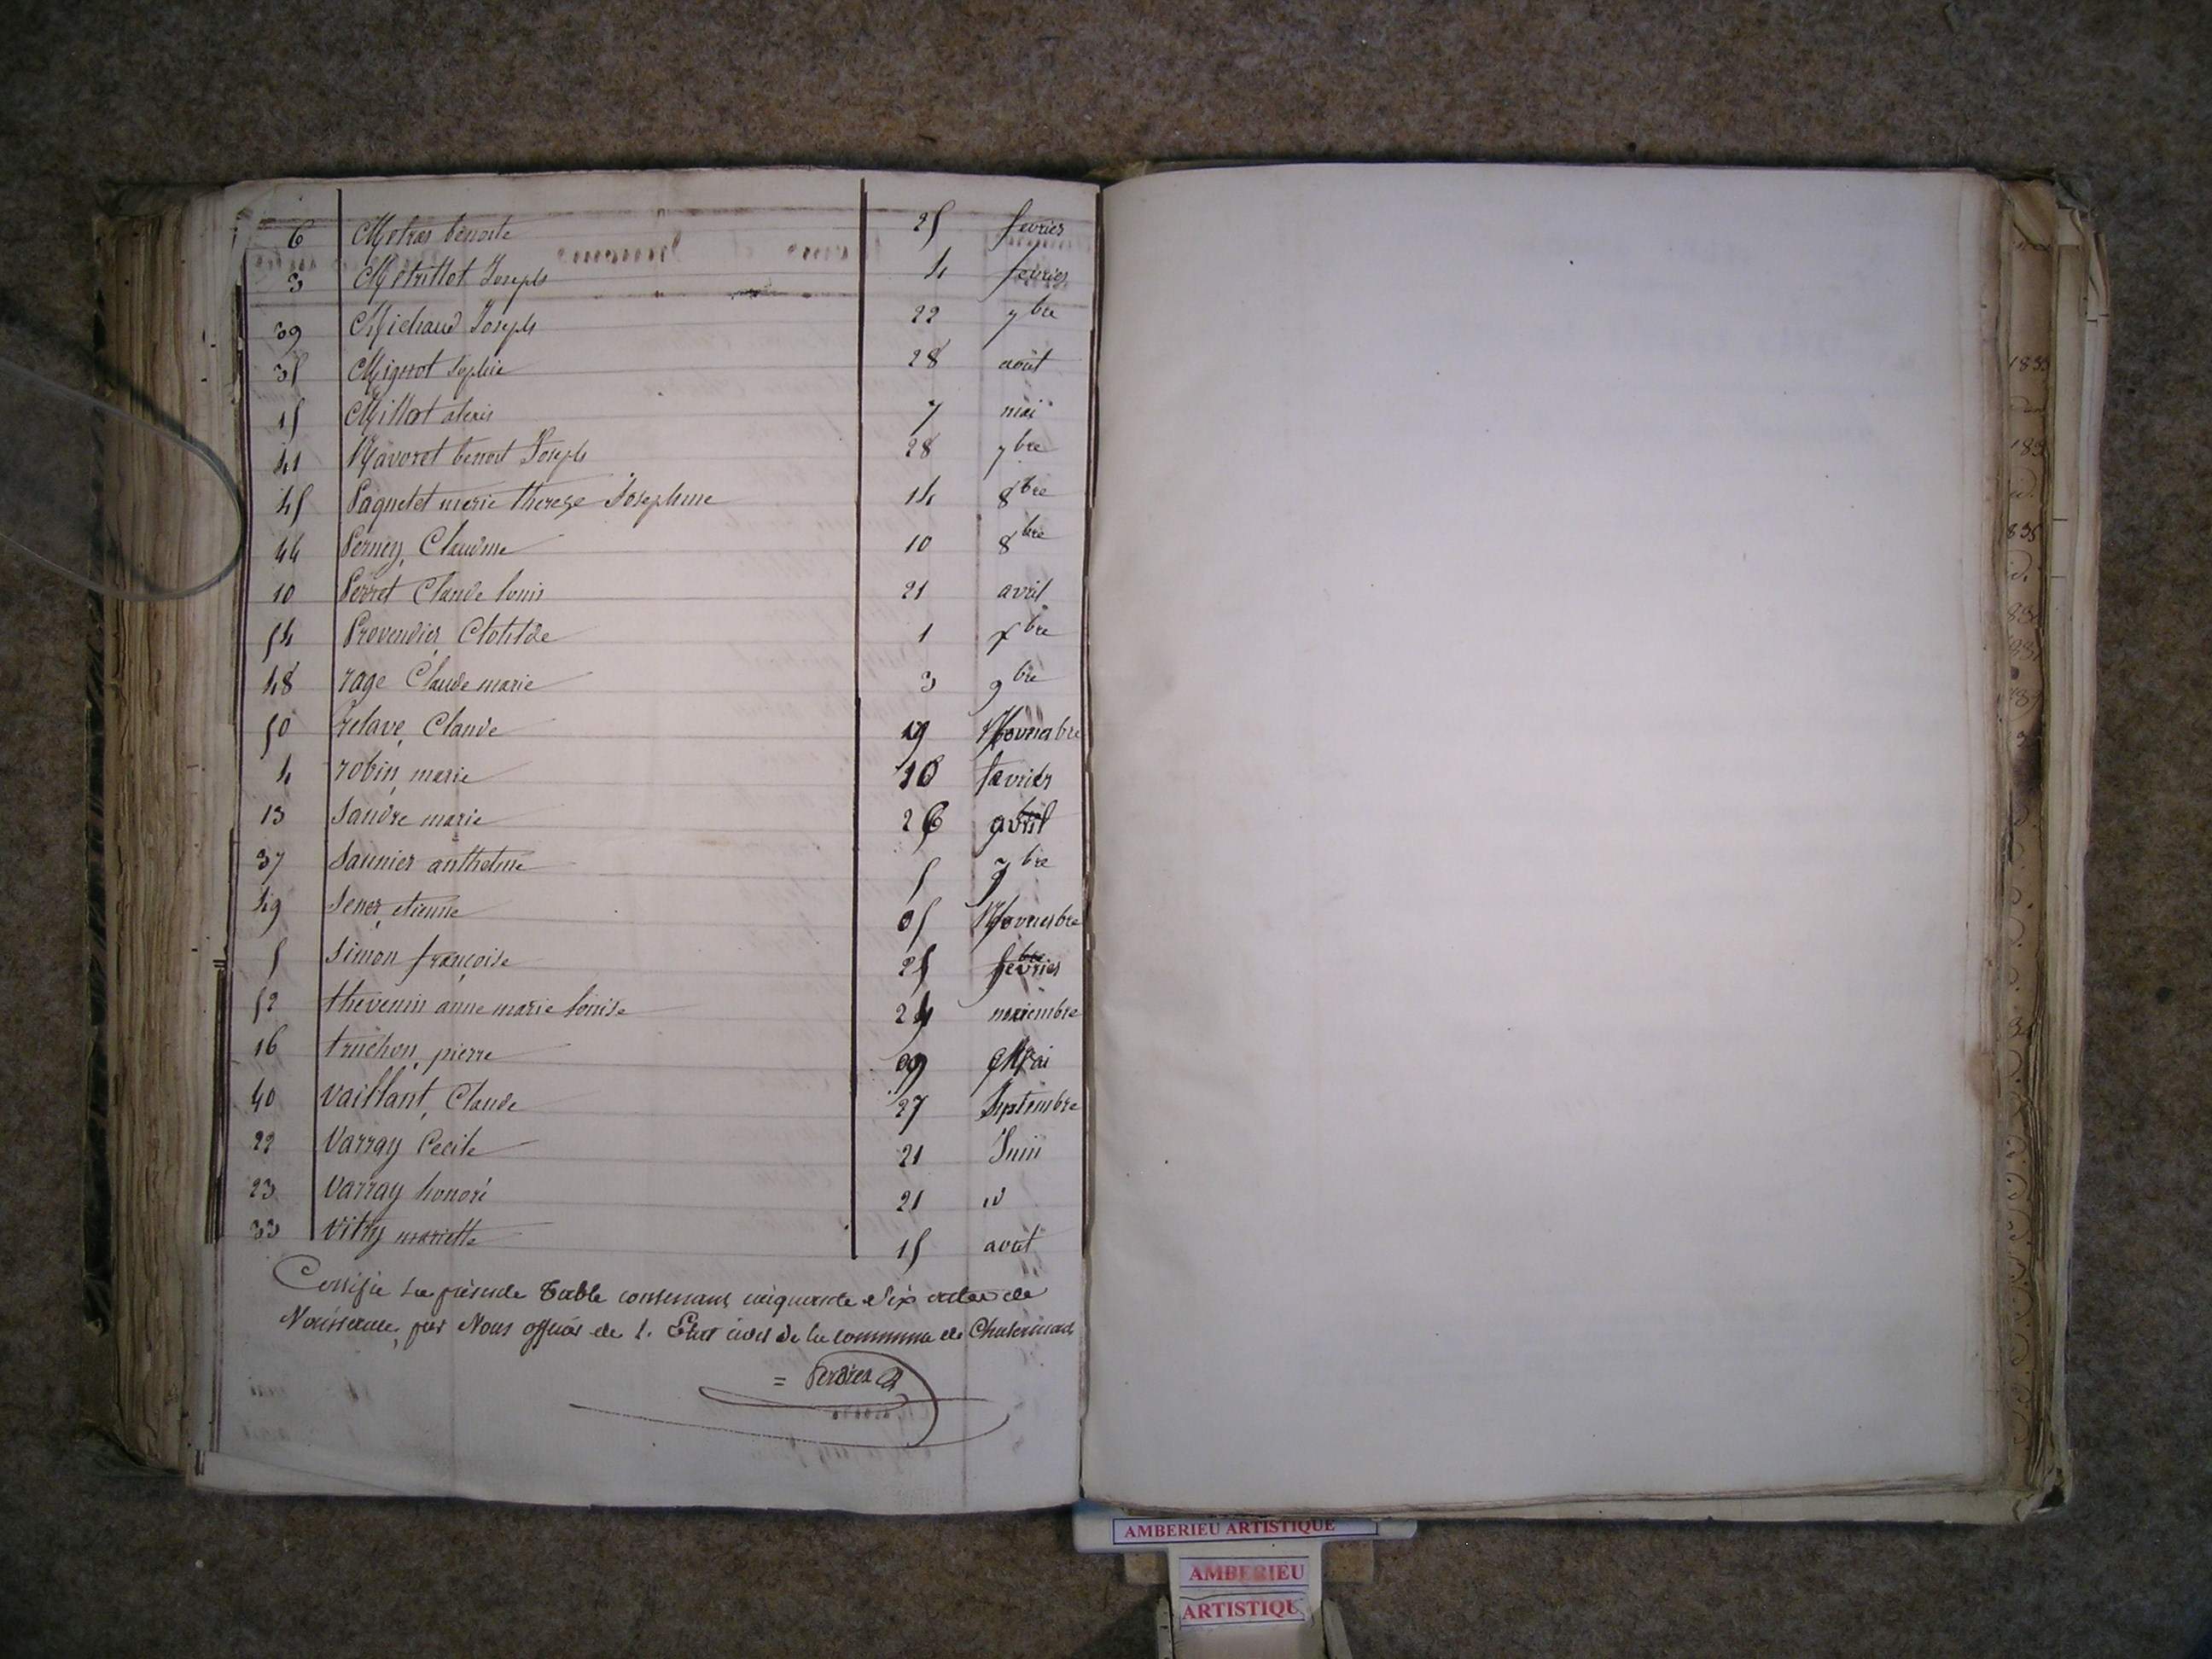 6 Metras benoite 25 fevrier
3 Metrillot Joseph 4 fevrier
39 Michaud Joseph 22 7bre
35 Mignot Sophie 28 août
15 Millot alexis 7 mai
41 Navoret benoit Joseph 28 7bre
45 Paquelet marie therese Josephine 14 8bre
44 Perney Claudine 10 8bre
10 Perret Claude louis 21 avril
54 Provendier Clotilde 1 xbre
48 rage Claude marie 3 9bre
50 relave Claude 19 Novembre
4 robin marie 10 fevrier
13 Sandre marie 26 avril
37 Saunier anthelme 5 7bre
49 Sener etienne 05 Novembre
5 Simon françoise 25 fevrier
52 thevenin anne marie louise 24 novembre
16 truchon pierre 09 Mai
40 Vaillant Claude 27 Septembre
22 Varray Cecile 21 Juin
23 Varray honoré 21 id
33 Vitry mariette 15 aout
Certifie la présente Table contenant cinquante Six actes de
Naissance, par Nous officier de l. Etat civil de la commune de
= Perdrix
AMBERIEU ARTISTIQUE
AMBERIEU
ARTISTIQUE
1835